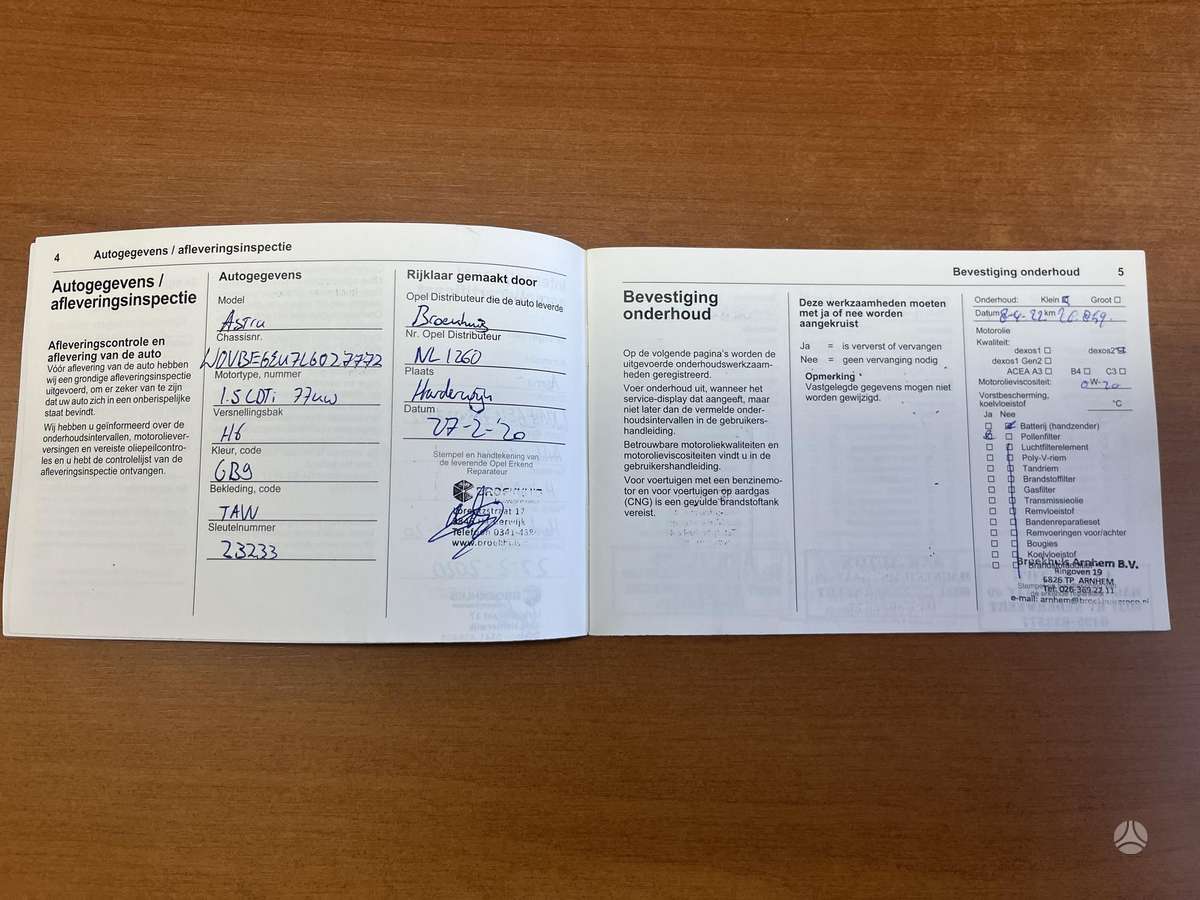 4 Autogegevens / afleveringsinspectie
Autogegevens /
afleveringsinspectie
Afleveringscontrole en
aflevering van de auto
Vóór aflevering van de auto hebben
wij een grondige afleveringsinspectie
uitgevoerd, om er zeker van te zijn
dat uw auto zich in een onberispelijke
staat bevindt.
Wij hebben u geïnformeerd over de
onderhoudsintervallen, motoroliever-
versingen en vereiste oliepeilcontro-
les en u hebt de controlelijst van de
afleveringsinspectie ontvangen.
Autogegevens
Model
Astra
Chassisnr.
Motortype, nummer
1.5 CDTi 77kw
Versnellingsbak
H6
Kleur, code
GB9
Bekleding, code
TAW
Sleutelnummer
23233
Rijklaar gemaakt door
Opel Distributeur die de auto leverde
Broekhuis
Nr. Opel Distributeur
NL1260
Plaats
Harderwijk
Datum
27-2-'20
Stempel en handtekening van
de leverende Opel Erkend
Reparateur
BROEKHUIS
Lorentzstraat 17
Harderwijk
Telefoon 0341-438
www.broekhuis
Bevestiging onderhoud 5
Bevestiging
onderhoud
Op de volgende pagina's worden de
uitgevoerde onderhoudswerkzaam-
heden geregistreerd.
Voer onderhoud uit, wanneer het
service-display dat aangeeft, maar
niet later dan de vermelde onder-
houdsintervallen in de gebruikers-
handleiding.
Betrouwbare motoroliekwaliteiten en
motorolieviscositeiten vindt u in de
gebruikershandleiding.
Voor voertuigen met een benzinemo-
tor en voor voertuigen op aardgas
(CNG) is een gevulde brandstoftank
vereist.
Deze werkzaamheden moeten
met ja of nee worden
aangekruist
Ja = is ververst of vervangen
Nee = geen vervanging nodig
Opmerking
Vastgelegde gegevens mogen niet
worden gewijzigd.
Onderhoud: Klein Groot
Datum 8-4-22 km 26.859
Motorolie
Kwaliteit:
dexos1 dexos2
dexos1 Gen2
ACEA A3 B4 C3
Motorolieviscositeit: 0W-20
Vorstbescherming,
koelvloeistof °C
Ja Nee
Batterij (handzender)
Pollenfilter
Luchtfilterelement
Poly-V-riem
Tandriem
Brandstoffilter
Gasfilter
Transmissieolie
Remvloeistof
Bandenreparatieset
Remvoeringen voor/achter
Bougies
Koelvloeistof
Broekhuis Arnhem B.V.
Ringoven 19
6826 TP ARNHEM
Tel: 026-369 22 11
e-mail: arnhem@broekhuisgroep.nl